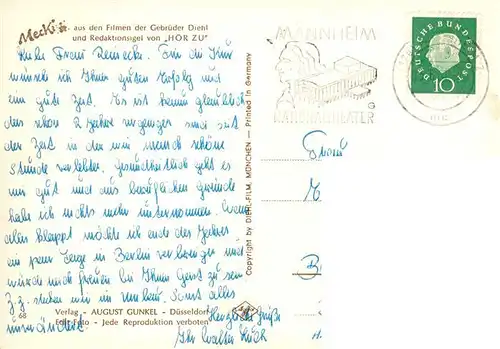 Mecki - aus den Filmen der Gebrüder Diehl
und Redaktionsigel von „HÖR ZU"
Liebe Frau Remecke. Zur
wünsch ich Ihnen guten Erfolg und
eine gute Zeit. Es ist kaum glaublich
das schon 2 Jahre vergangen sind seit
der Zeit in der wir manch schöne
Stunde verlebten. Gesundheitlich geht es
uns gut und aus beruflichen Gründe
habe ich nichts mehr unternommen. Wenn
alles klappt möchte ich ende des Jahres
ein paar Tage in Berlin verbringen und
würde mich freuen bei Ihnen Gast zu sein
Z.Z. stecken wir im Umbau. Sonst alles
unverändert.
68
Verlag - AUGUST GUNKEL - Düsseldorf
Edit. Foto - Jede Reproduktion verboten
Herzliche Grüße
Ihr Walter
Copyright by DIEHL-FILM, MÜNCHEN — Printed in Germany
MANNHEIM
NATIONALTHEATER
DEUTSCHE BUNDESPOST
10
Frau